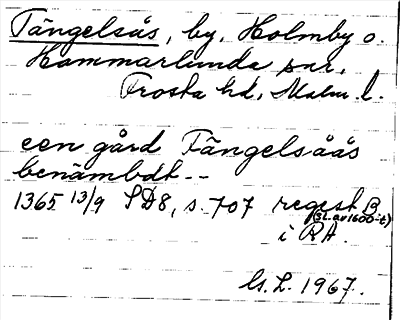 Tängelsås, by, Holmby o.
Hammarlunda snr,
Frosta hd, Malm. l.
een gård Tängelsåås
benämbdt--
1365 13/9 SD8, s. 707 regest B
(sl. av 1600-t)
i RA.
G. L. 1967.